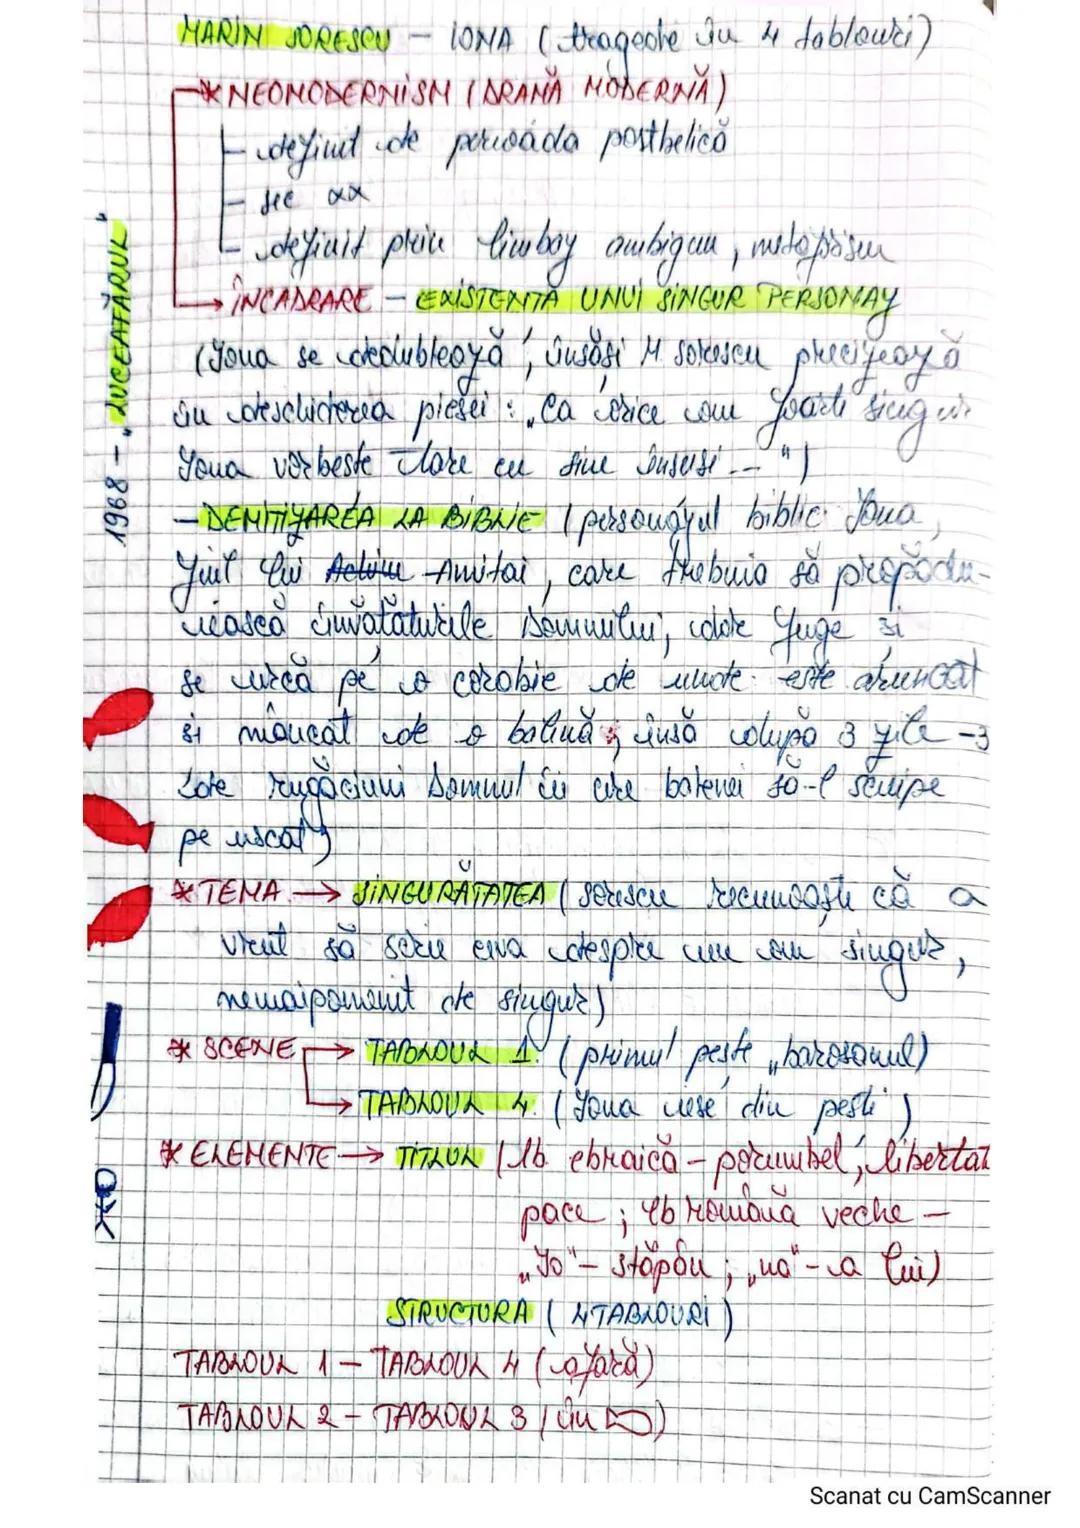 MARIN SORESCU – IONA (tragedie în 4 tablouri)
* NEOMODERNISM (DRAMĂ MODERNĂ)
– definit de perioada postbelică
– sec XX
– definit prin limbaj ambiguu,
→ ÎNCADRARE – EXISTENTA UNUI SINGUR PERSONAJ
(Iona se dedublează, însăși M. Sorescu precizează
în deschiderea piesei: „Ca orice om foarte singur
Iona vorbeste tare cu sine însusi...")
– DEMITIZAREA LA BIBLIE (personajul biblic Iona,
fiul lui Amitai, care trebuia să propodu-
iească învățăturile Domnului, dar fuge si
se urcă pe o corabie de unde este aruncat
si mâncat de o balenă; însă după 3 zile – 3
rugăciuni Domnul îi cere balenei să-l scuipe
pe uscat)
* TEMA → SINGURĂTATEA (Sorescu recunoaște că a
vrut să scrie ceva despre un om singur,
nemaipomenit de singur)
* SCENE → TABLOUL 1. (primul peste „barosanul)
→ TABLOUL 4. (Iona iese din pesti)
* ELEMENTE → TITLUL (lb ebraică – porumbel, libertat
pace; lb română veche –
„Io" – stăpân; „na" – a lui)
STRUCTURA (4 TABLOURI)
TABLOUL 1 – TABLOUL 4 (afară)
TABLOUL 2 – TABLOUL 3 (în
1968 – „LUCEAFĂRUL"
Scanat cu CamScanner